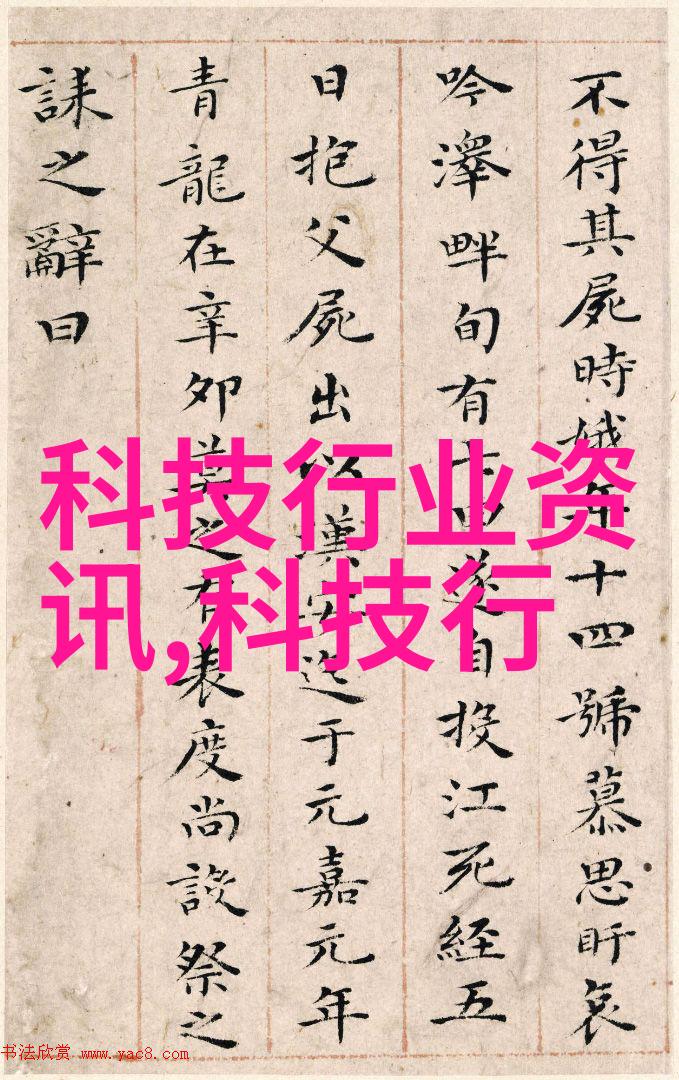 不得其屍時娥年十四號慕思盱哀
吟澤畔旬有七日遂自投江死經五
日抱父屍出以漢安迄于元嘉元年
青龍在辛卯莫之有表度尚設祭之
誄之辭曰
科技行业资
讯,科技行
书法欣赏 www.yac8.com